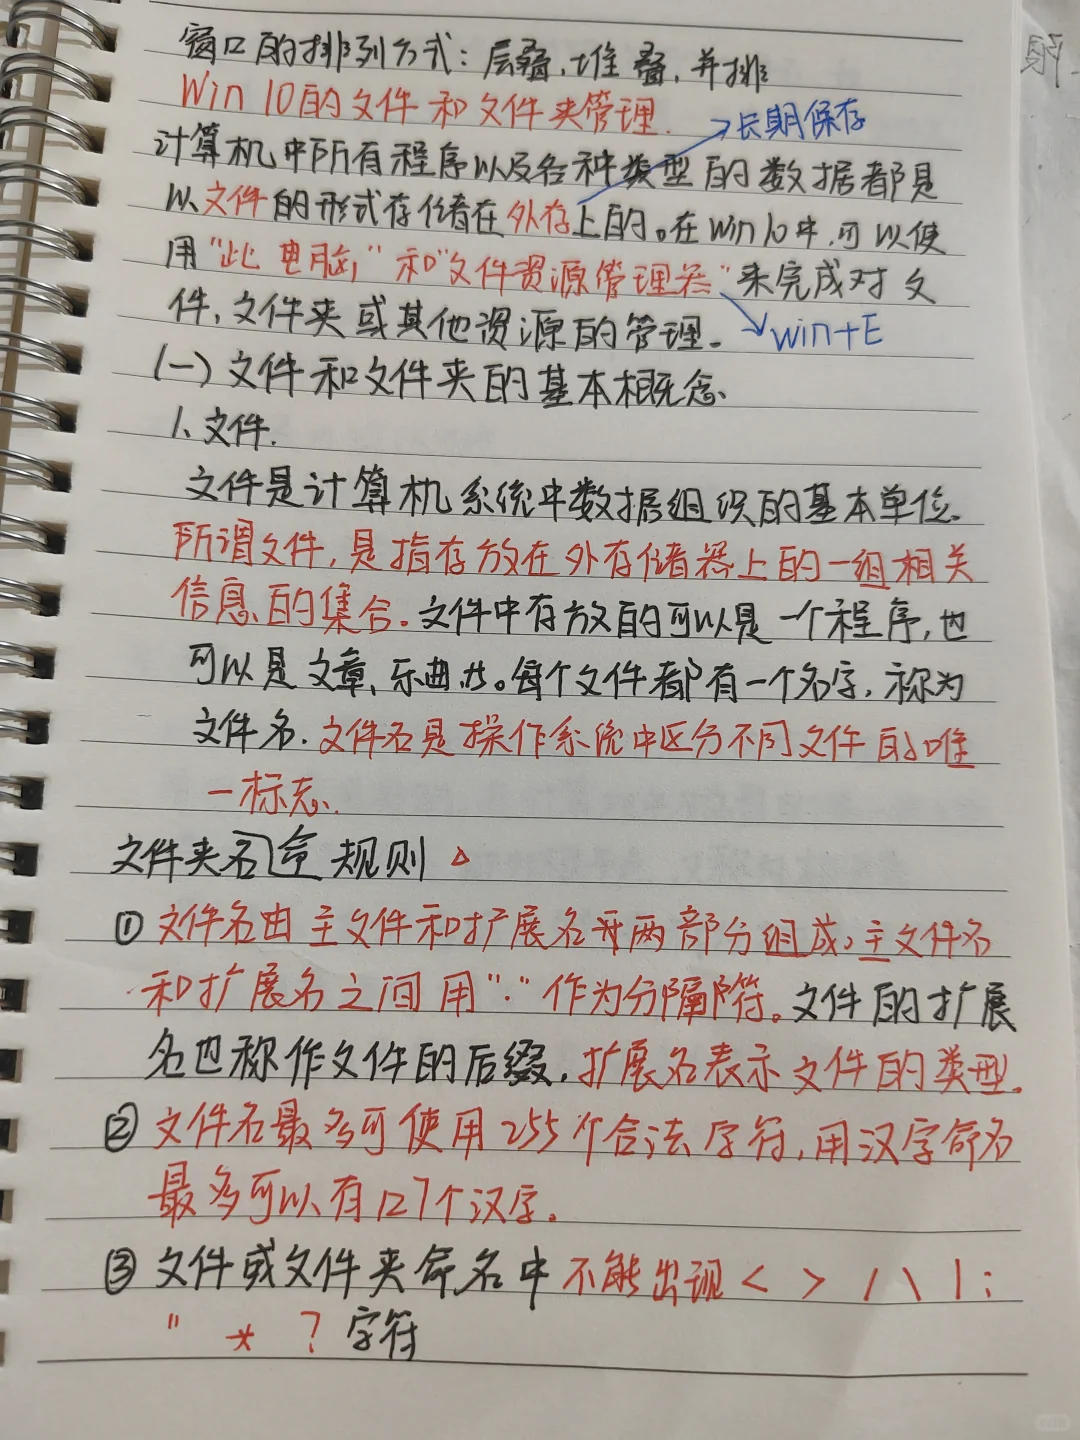 窗口的排列方式：层叠、堆叠、并排
Win 10的文件和文件夹管理.
→长期保存
计算机中所有程序以及各种类型的数据都是
以文件的形式存储在外存上的。在Win10中,可以使
用“此电脑”和“文件资源管理器”来完成对文
件,文件夹或其他资源的管理。
win+E
(一)文件和文件夹的基本概念.
1、文件.
文件是计算机系统中数据组织的基本单位.
所谓文件,是指存放在外存储器上的一组相关
信息的集合。文件中存放的可以是一个程序,也
可以是文章、乐曲等。每个文件都有一个名字,称为
文件名.文件名是操作系统中区分不同文件的唯
一标志.
文件夹命名规则 △
① 文件名由主文件和扩展名两部分组成,主文件名
和扩展名之间用“.”作为分隔符。文件的扩展
名也称作文件的后缀,扩展名表示文件的类型.
② 文件名最多可使用255个合法字符,用汉字命名
最多可以有127个汉字。
③ 文件或文件夹命名中不能出现< > / \ | :
" * ? 字符